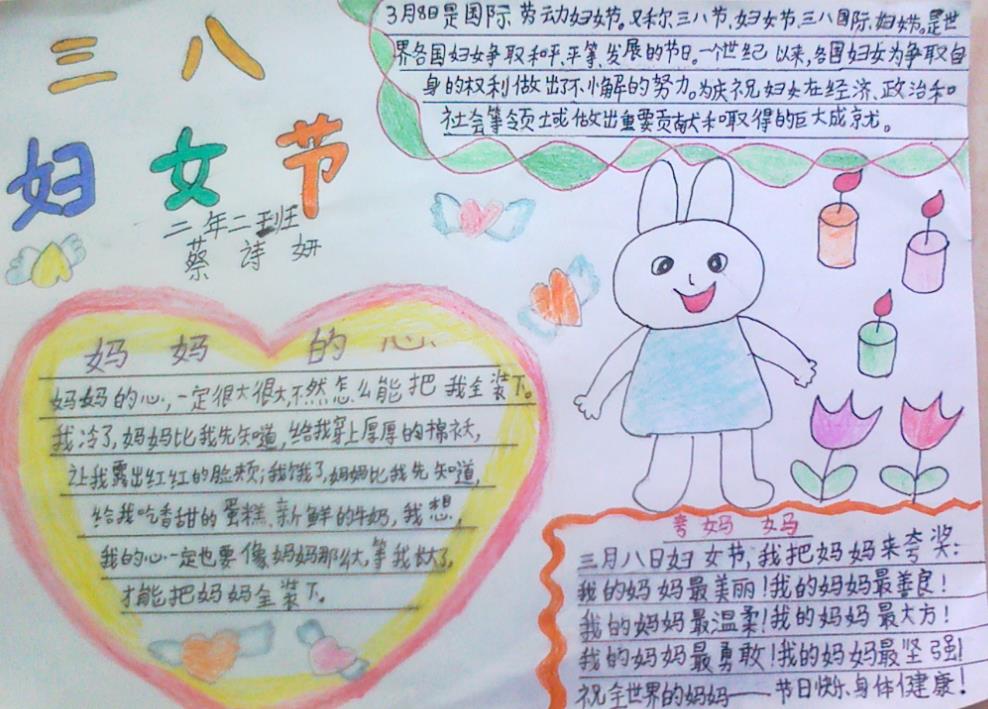 三八
妇女节
二年二班
蔡诗妍
3月8日是国际劳动妇女节。又称三八节、妇女节、三八国际妇女节。是世
界各国妇女争取和平、平等、发展的节日。一个世纪以来,各国妇女为争取自
身的权利做出了不懈的努力。为庆祝妇女在经济、政治和
社会等领域做出重要贡献和取得的巨大成就。
妈妈的心
妈妈的心,一定很大很大,不然怎么能把我全装下。
我冷了,妈妈比我先知道,给我穿上厚厚的棉衣,
让我露出红红的脸颊;我饿了,妈妈比我先知道,
给我吃香甜的蛋糕、新鲜的牛奶,我想,
我的心一定也要像妈妈那么大,等我长大了,
才能把妈妈全装下。
夸妈妈
三月八日妇女节,我把妈妈来夸奖:
我的妈妈最美丽!我的妈妈最善良!
我的妈妈最温柔!我的妈妈最大方!
我的妈妈最勇敢!我的妈妈最坚强!
祝全世界的妈妈——节日快乐、身体健康!